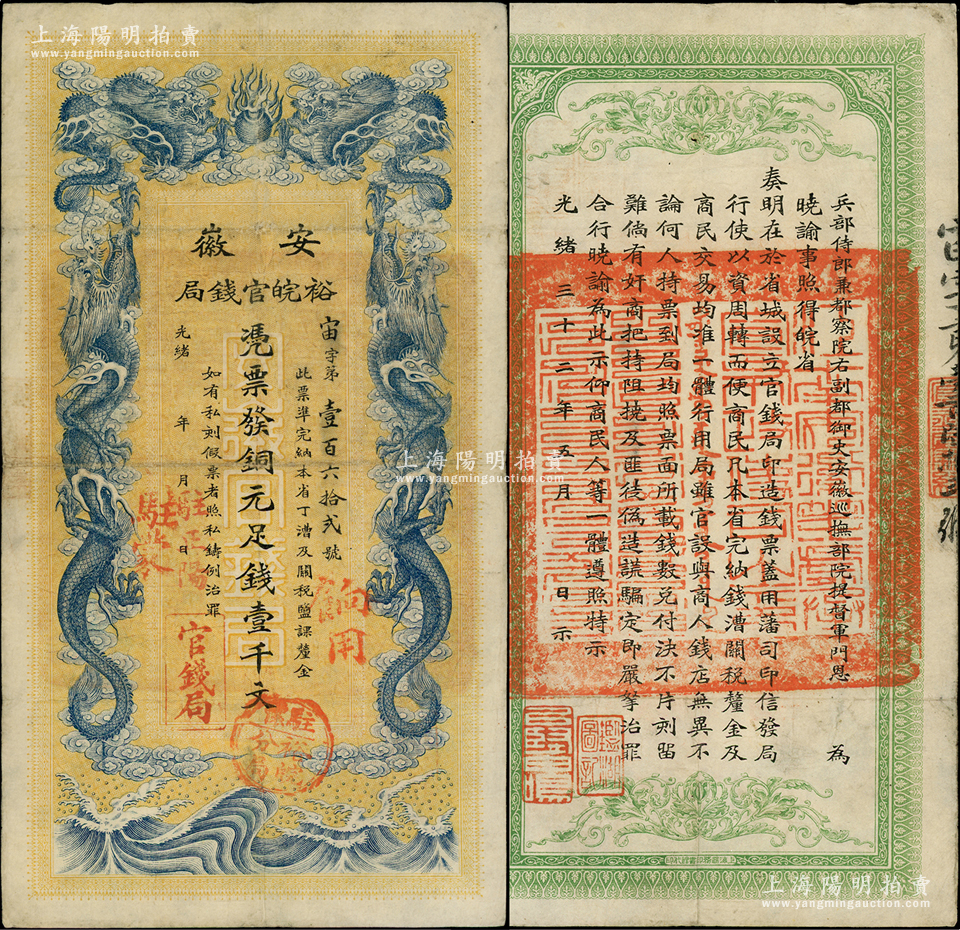 上海陽明拍賣
www.yangmingauction.com
安徽
裕皖官錢局
宙字第壹百六拾貳號
此票準完納本省丁漕及關稅鹽課釐金
憑票發銅元足錢壹千文
如有私刻假票者照私鑄例治罪
光緒 年 月 日
向用
官錢局
上海陽明拍賣
www.yangmingauction.com
兵部侍郎兼都察院右副都御史安徽巡撫部院提督軍門恩 為
曉諭事照得皖省
奏明在於省城設立官錢局印造錢票蓋用藩司印信發局
行使以資周轉而便商民凡本省完納錢漕關稅釐金及
商民交易均准一體行用局雖官設與商人錢店無異不
論何人持票到局均照票面所載錢數兌付決不片刻留
難倘有奸商把持阻撓及匪徒偽造謊騙定即嚴拏治罪
合行曉諭為此示仰商民人等一體遵照特示
光緒三十二年五月 日示
上海陽明拍賣
www.yangmingauction.com